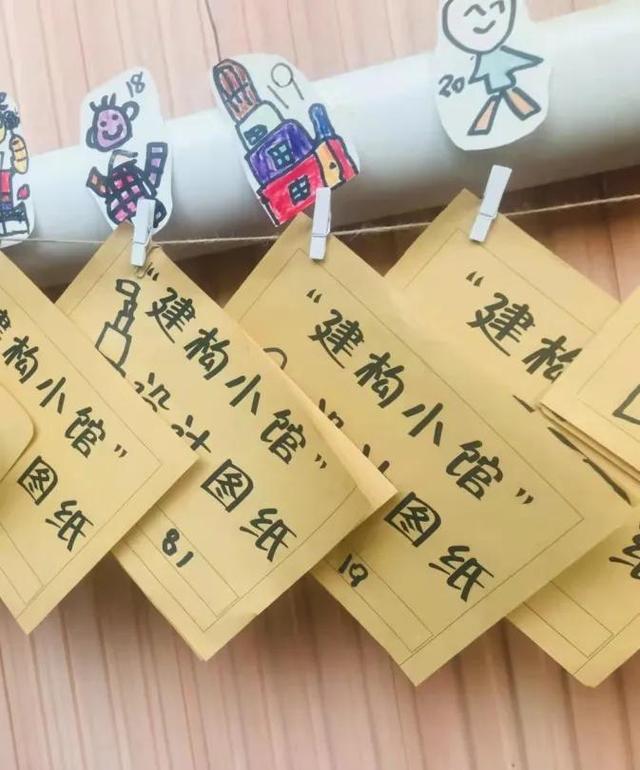 18
19
20
建构小馆”
图纸
“建构小馆”
设计图纸
81
“建构小馆”
设计图纸
19
“建构
纸